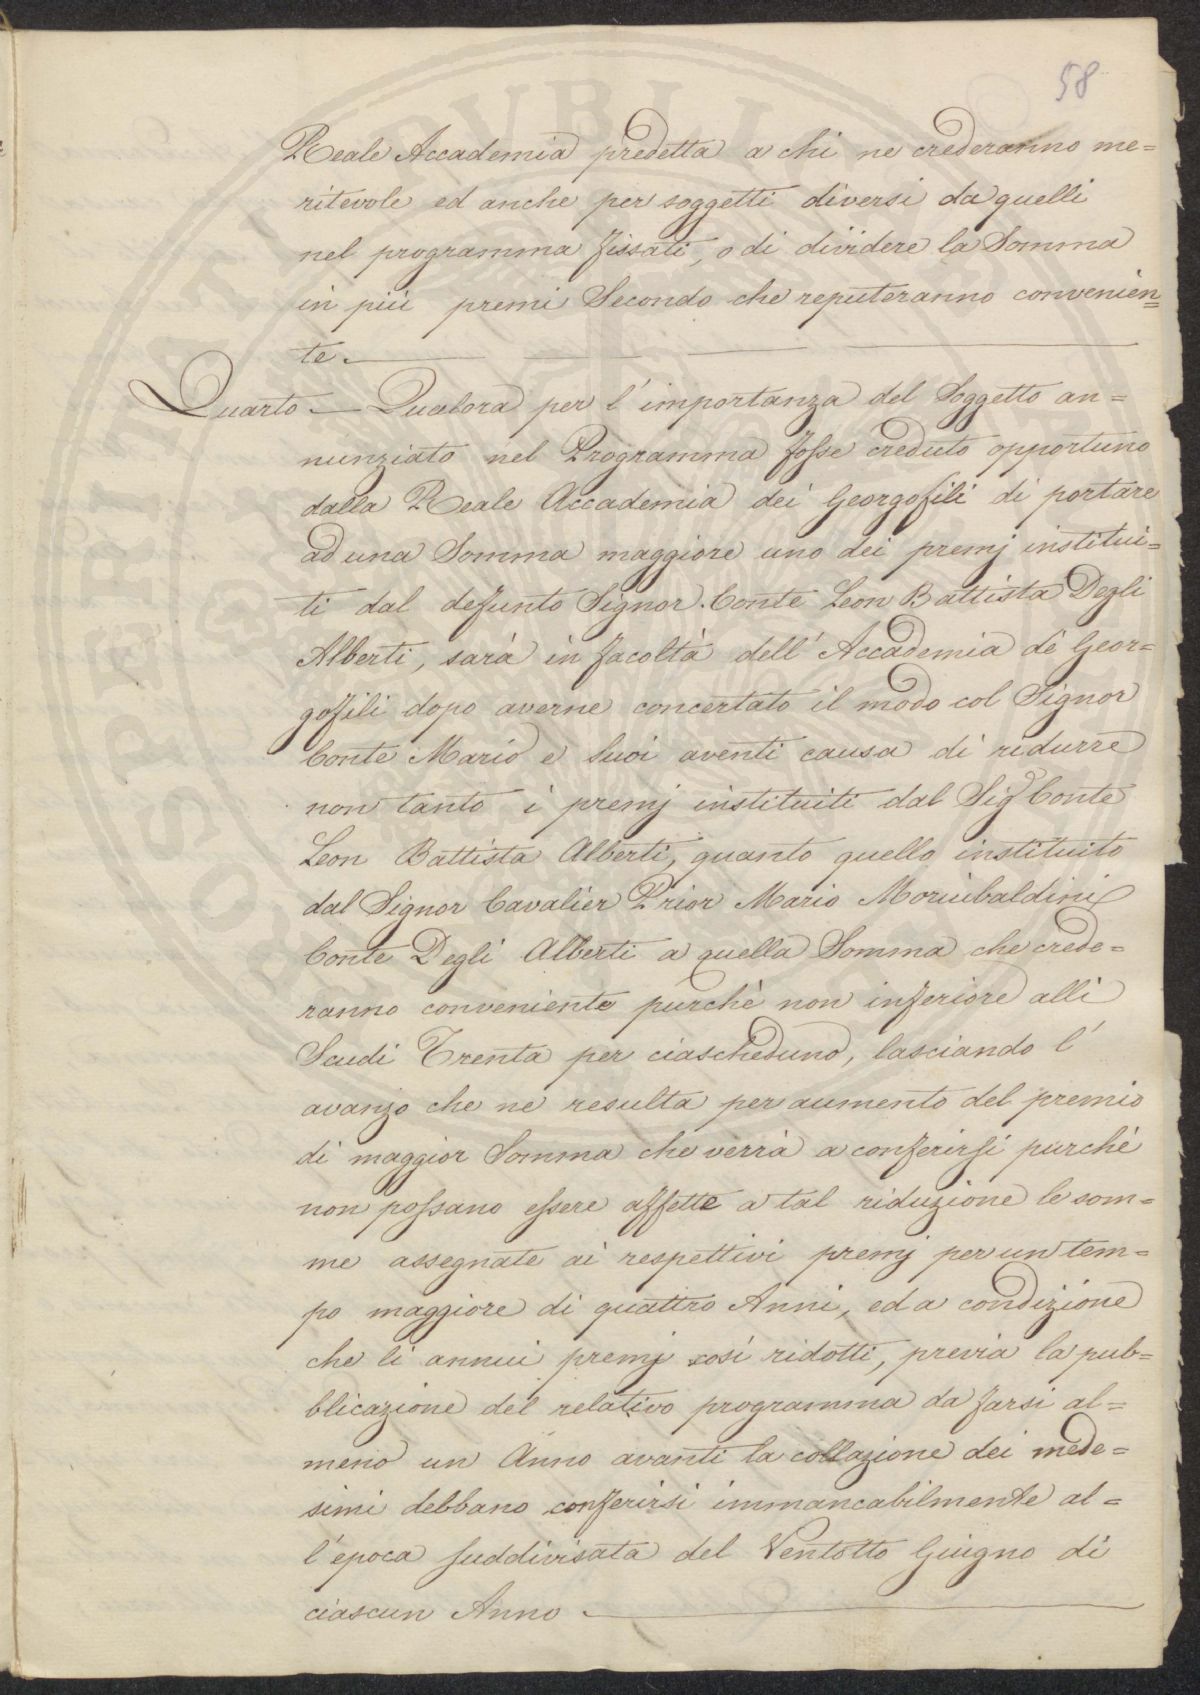 58
Reale Accademia predetta a chi ne crederanno me=
ritevole ed anche per soggetti diversi da quelli
nel programma fissati, o di dividere la Somma
in più premi Secondo che reputeranno convenien=
te.
Quarto — Qualora per l'importanza del Soggetto an=
nunziato nel Programma fosse creduto opportuno
dalla Reale Accademia dei Georgofili di portare
ad una Somma maggiore uno dei premj institui=
ti dal defunto Signor Conte Leon Battista Degli
Alberti, sarà in facoltà dell'Accademia dè Geor=
gofili dopo averne concertato il modo col Signor
Conte Mario e Suoi aventi causa di ridurre
non tanto i premj instituiti dal Sigr Conte
Leon Battista Alberti, quanto quello instituito
dal Signor Cavalier Prior Mario Moriubaldini
Conte Degli Alberti a quella Somma che crede=
ranno conveniente purchè non inferiore alli
Scudi Trenta per ciascheduno, lasciando l'
avanzo che ne resulta per aumento del premio
di maggior Somma che verrà a conferirsi purchè
non possano essere affette a tal riduzione le som=
me assegnate ai respettivi premj per un tem=
po maggiore di quattro Anni, ed a condizione
che li annui premj così ridotti, previa la pub=
blicazione del relativo programma da farsi al=
meno un Anno avanti la collazione dei mede=
simi debbano conferirsi immancabilmente al=
l'epoca suddivisata del Ventotto Giugno di
ciascun Anno